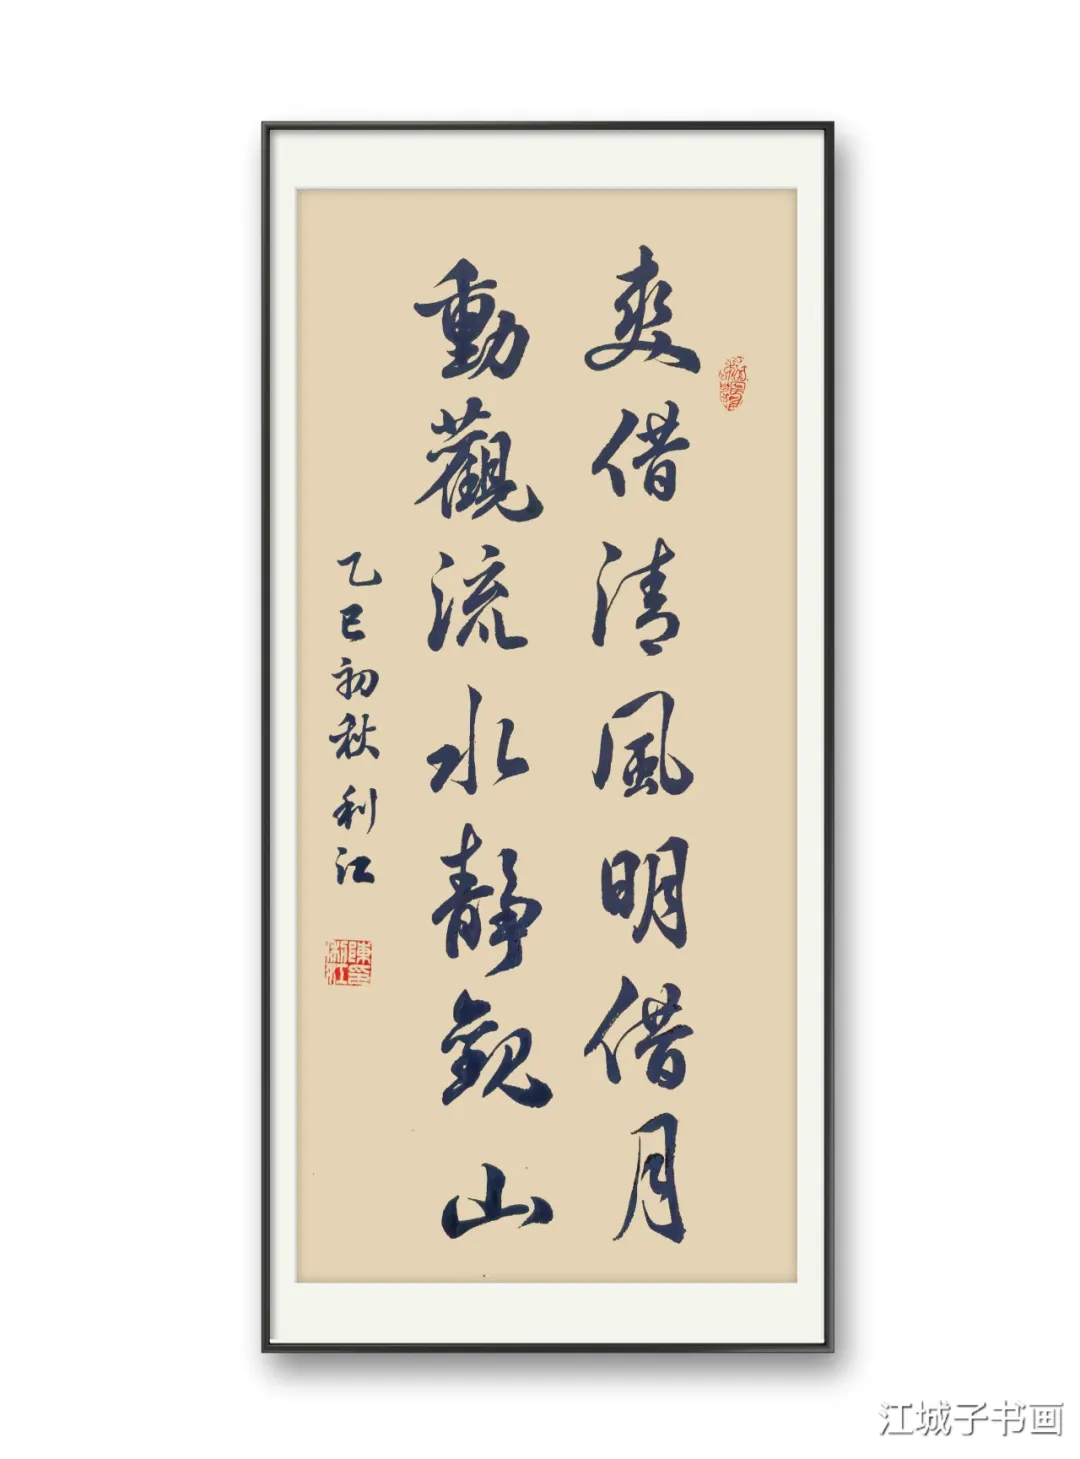 爽借清風明借月
動觀流水靜觀山
乙巳初秋利江
江城子书画